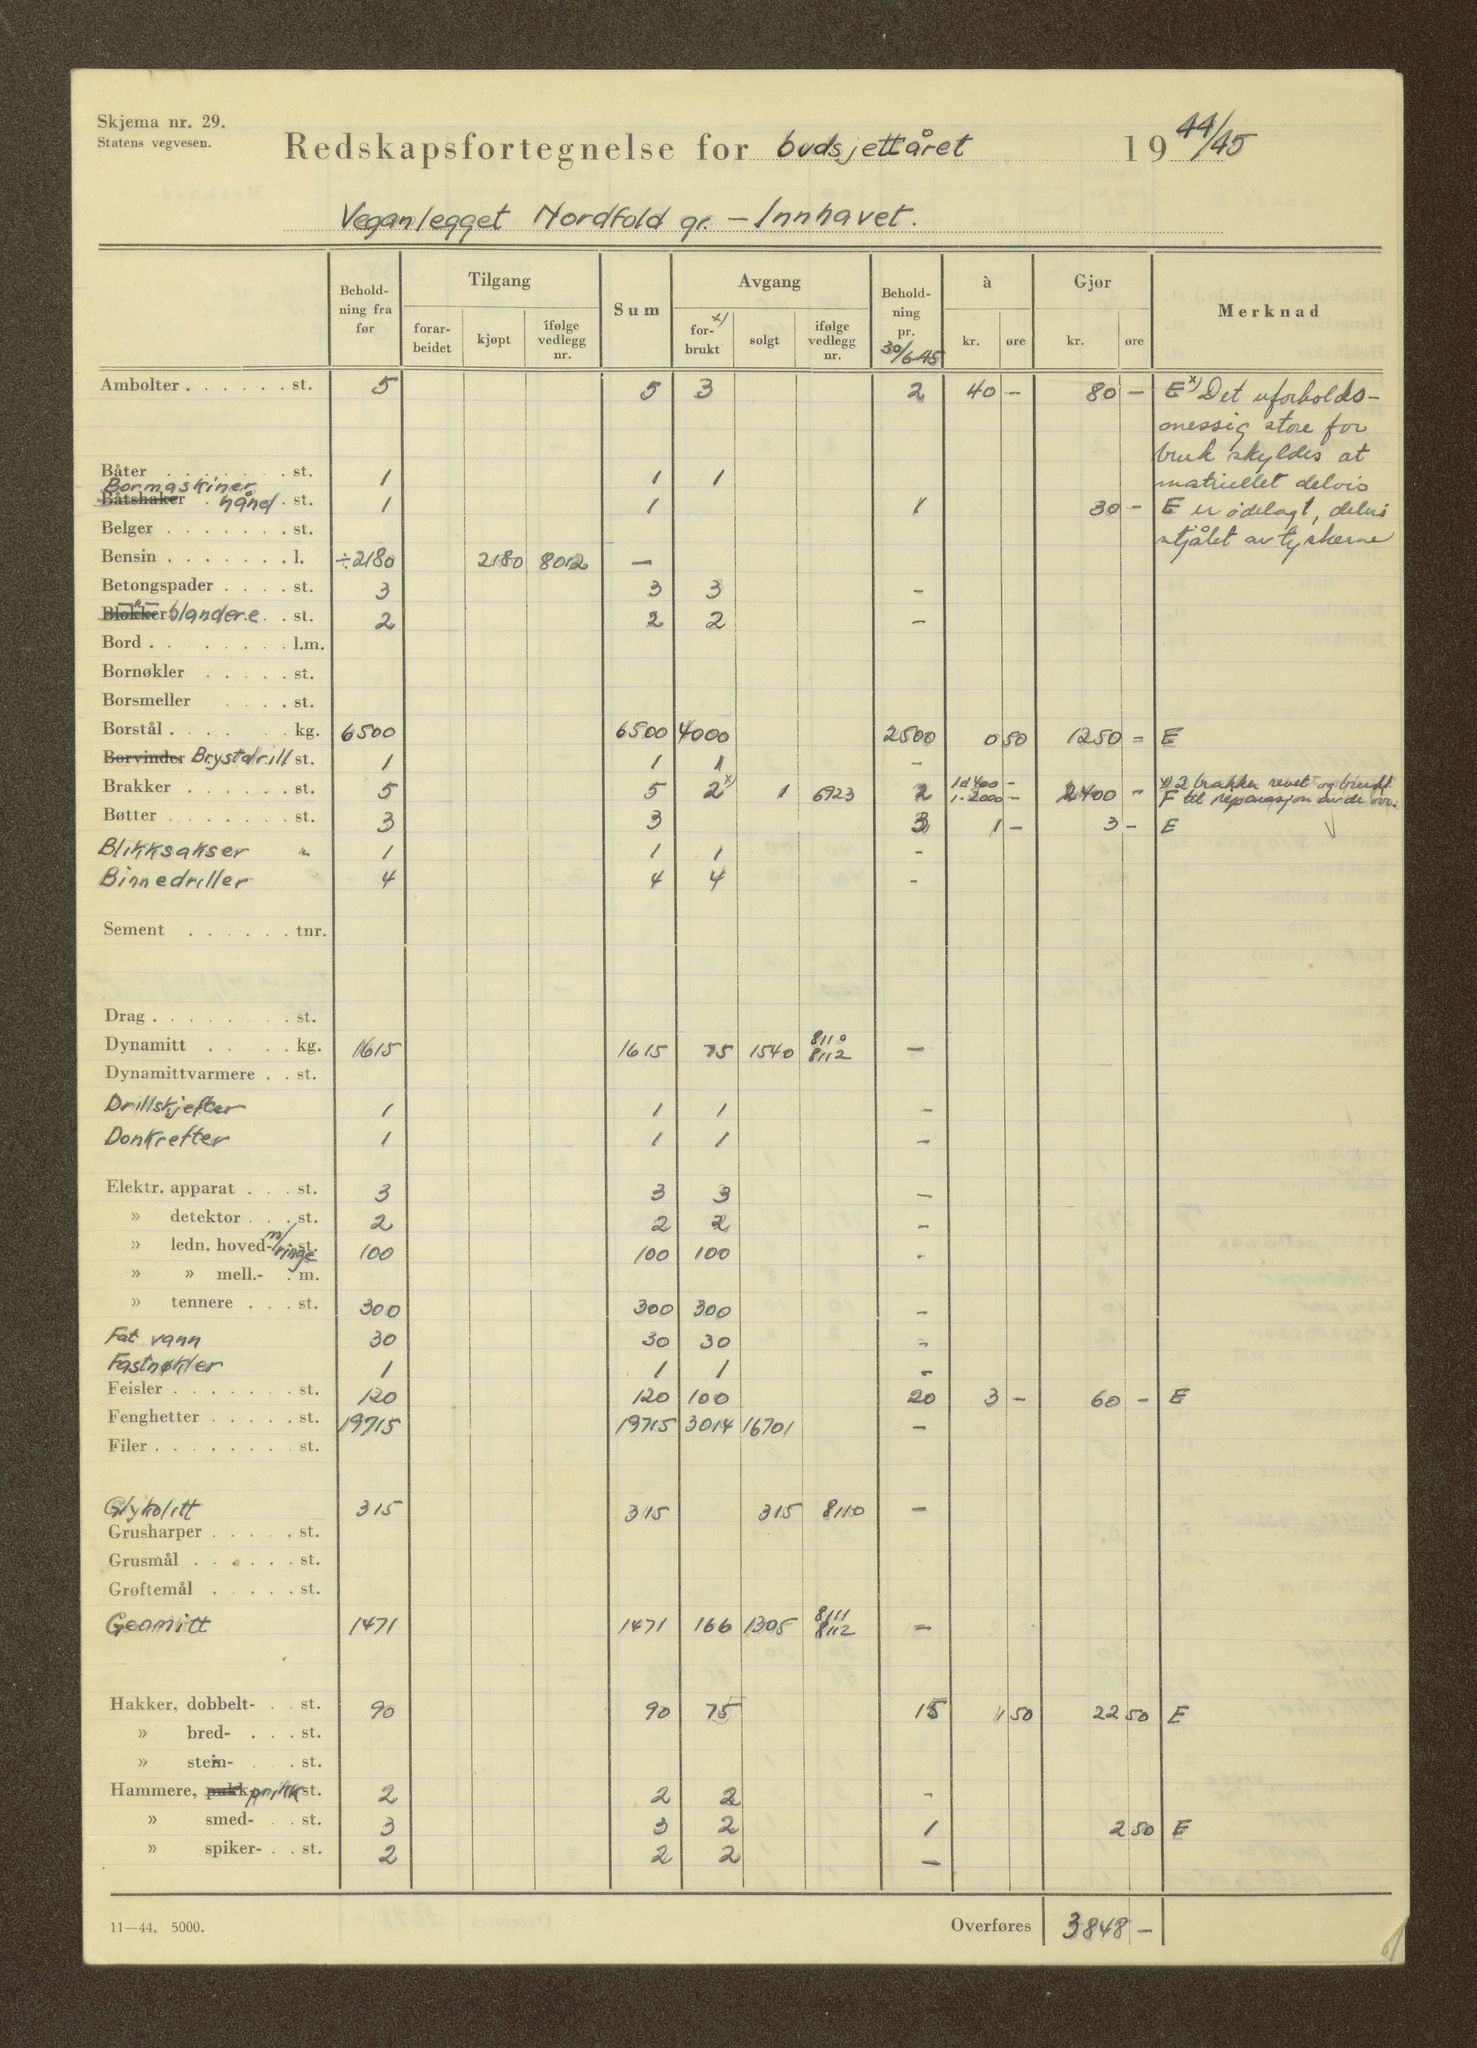 Skjema nr. 29.
Statens vegvesen.
Redskapsfortegnelse for budsjettåret 19 44/45
Veganlegget Nordfold gr. – Innhavet.
Beholdning fra før | Tilgang: forarbeidet | kjøpt | ifølge vedlegg nr. | Sum | Avgang: forbrukt x) | solgt | ifølge vedlegg nr. | Beholdning pr. 30/6 45 | à kr. | øre | Gjør kr. | øre | Merknad
Ambolter . . . . . . st. 5 5 3 2 40 – 80 – E x) Det uforholds-
messig store for
bruk skyldes at
Båter . . . . . . . st. 1 1 1 matriellet delvis
Bormaskiner
Båtshaker hånd . st. 1 1 1 30 – E er ødelagt, delvis
Belger . . . . . . . st. stjålet av tyskerne
Bensin . . . . . . . l. ÷2180 2180 8012 —
Betongspader . . . . st. 3 3 3 –
Blokker –"– blandere . st. 2 2 2 –
Bord . . . . . . . l.m.
Bornøkler . . . . . st.
Borsmeller . . . . st.
Borstål . . . . . . kg. 6500 6500 4000 2500 0 50 1250 – E
Borvinder Brystdrill st. 1 1 1 –
Brakker . . . . . . st. 5 5 2 x) 1 6923 2 1 à 400 – x) 2 brakker revet og brukt
1 - 2000 – 2400 – F til reparasjon av de
Bøtter . . . . . . . st. 3 3 3 1 – 3 – E
Blikksakser " 1 1 1 –
Binnedriller 4 4 4 –
Sement . . . . . . tnr.
Drag . . . . . . . . st.
Dynamitt . . . . . kg. 1615 1615 75 1540 8110 8112 —
Dynamittvarmere . . st.
Drillskjefter 1 1 1 –
Donkrefter 1 1 1 –
Elektr. apparat . . . st. 3 3 3 –
» detektor . . . st. 2 2 2 –
» ledn. hoved- m/ringe st. 100 100 100 -
» » mell.- . m.
» tennere . . . st. 300 300 300 –
Fat vann 30 30 30 –
Fastnøkler 1 1 1 –
Feisler . . . . . . . st. 120 120 100 20 3 – 60 – E
Fenghetter . . . . . st. 19715 19715 3014 16701 —
Filer . . . . . . . . st.
Glykolitt 315 315 315 8110 —
Grusharper . . . . . st.
Grusmål . . . . . . st.
Grøftemål . . . . . st.
Geomitt 1471 1471 166 1305 8111 8112 —
Hakker, dobbelt- . . st. 90 90 75 15 1 50 22 50 E
» bred- . . . st.
» stein- . . st.
Hammere, pukk prikk st. 2 2 2 –
» smed- . . st. 3 3 2 1 2 50 E
» spiker- . . st. 2 2 2 —
11—44. 5000. Overføres 3848 –